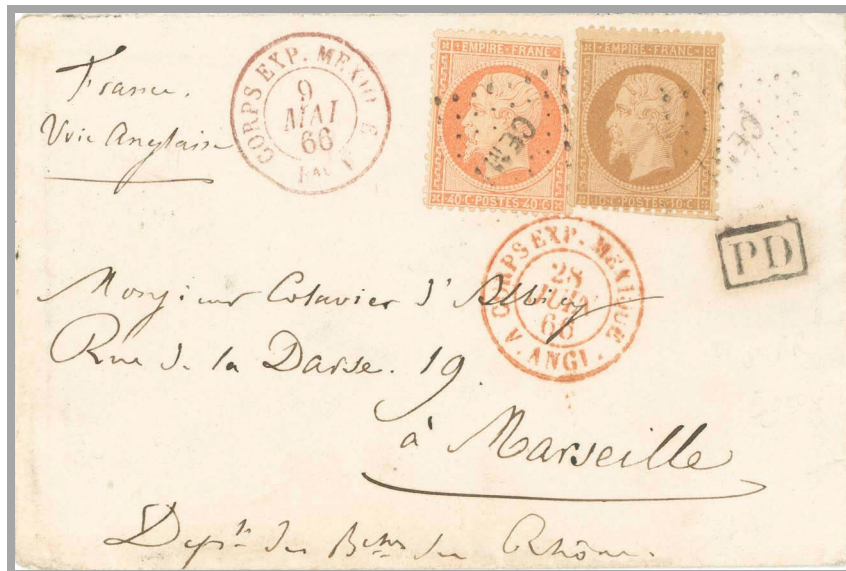 France.
Voie Anglaise
CORPS EXP. MEXIQUE
9
MAI
66
EMPIRE FRANC
CEM
40 C POSTES 40 C
EMPIRE FRANC
10 C POSTES 10 C
PD
CORPS EXP. MEXIQUE
28
JUIN
66
V. ANGL.
Monsieur Colavier d'Albicy
Rue de la Darse. 19.
à Marseille
Dept. des Bches du Rhône.